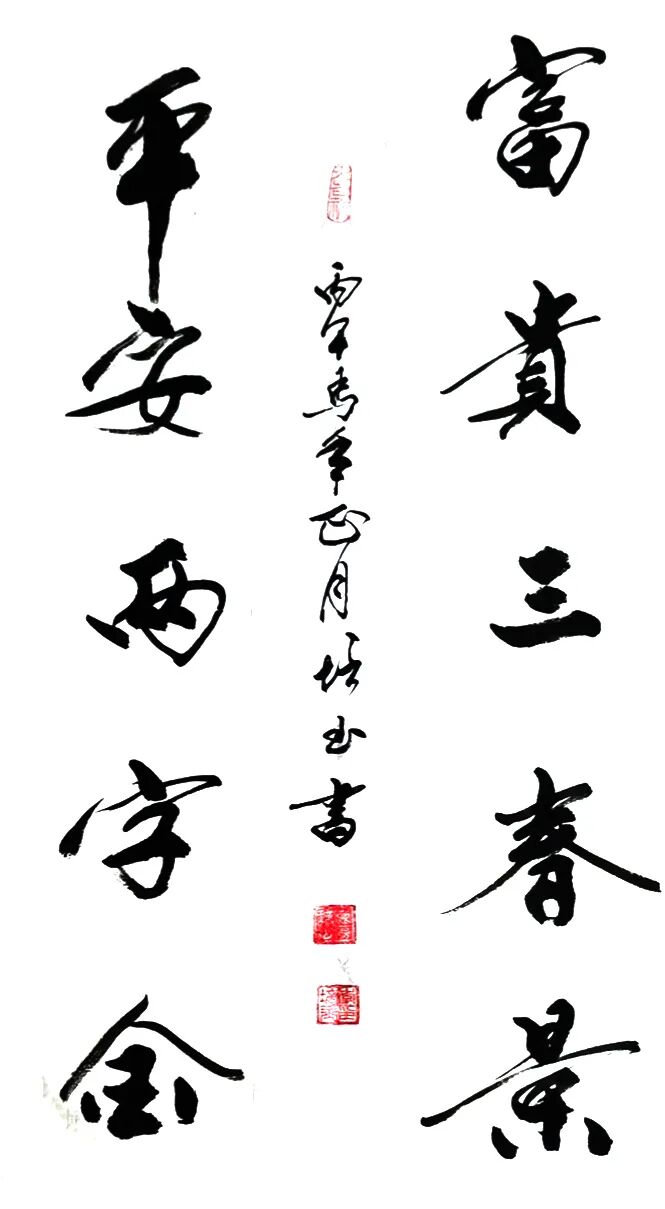 富貴三春景
丙午馬年正月培玉書
平安兩字金